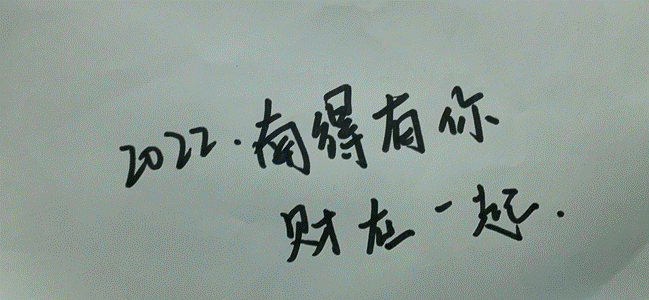 2022.南得有你
财在一起.